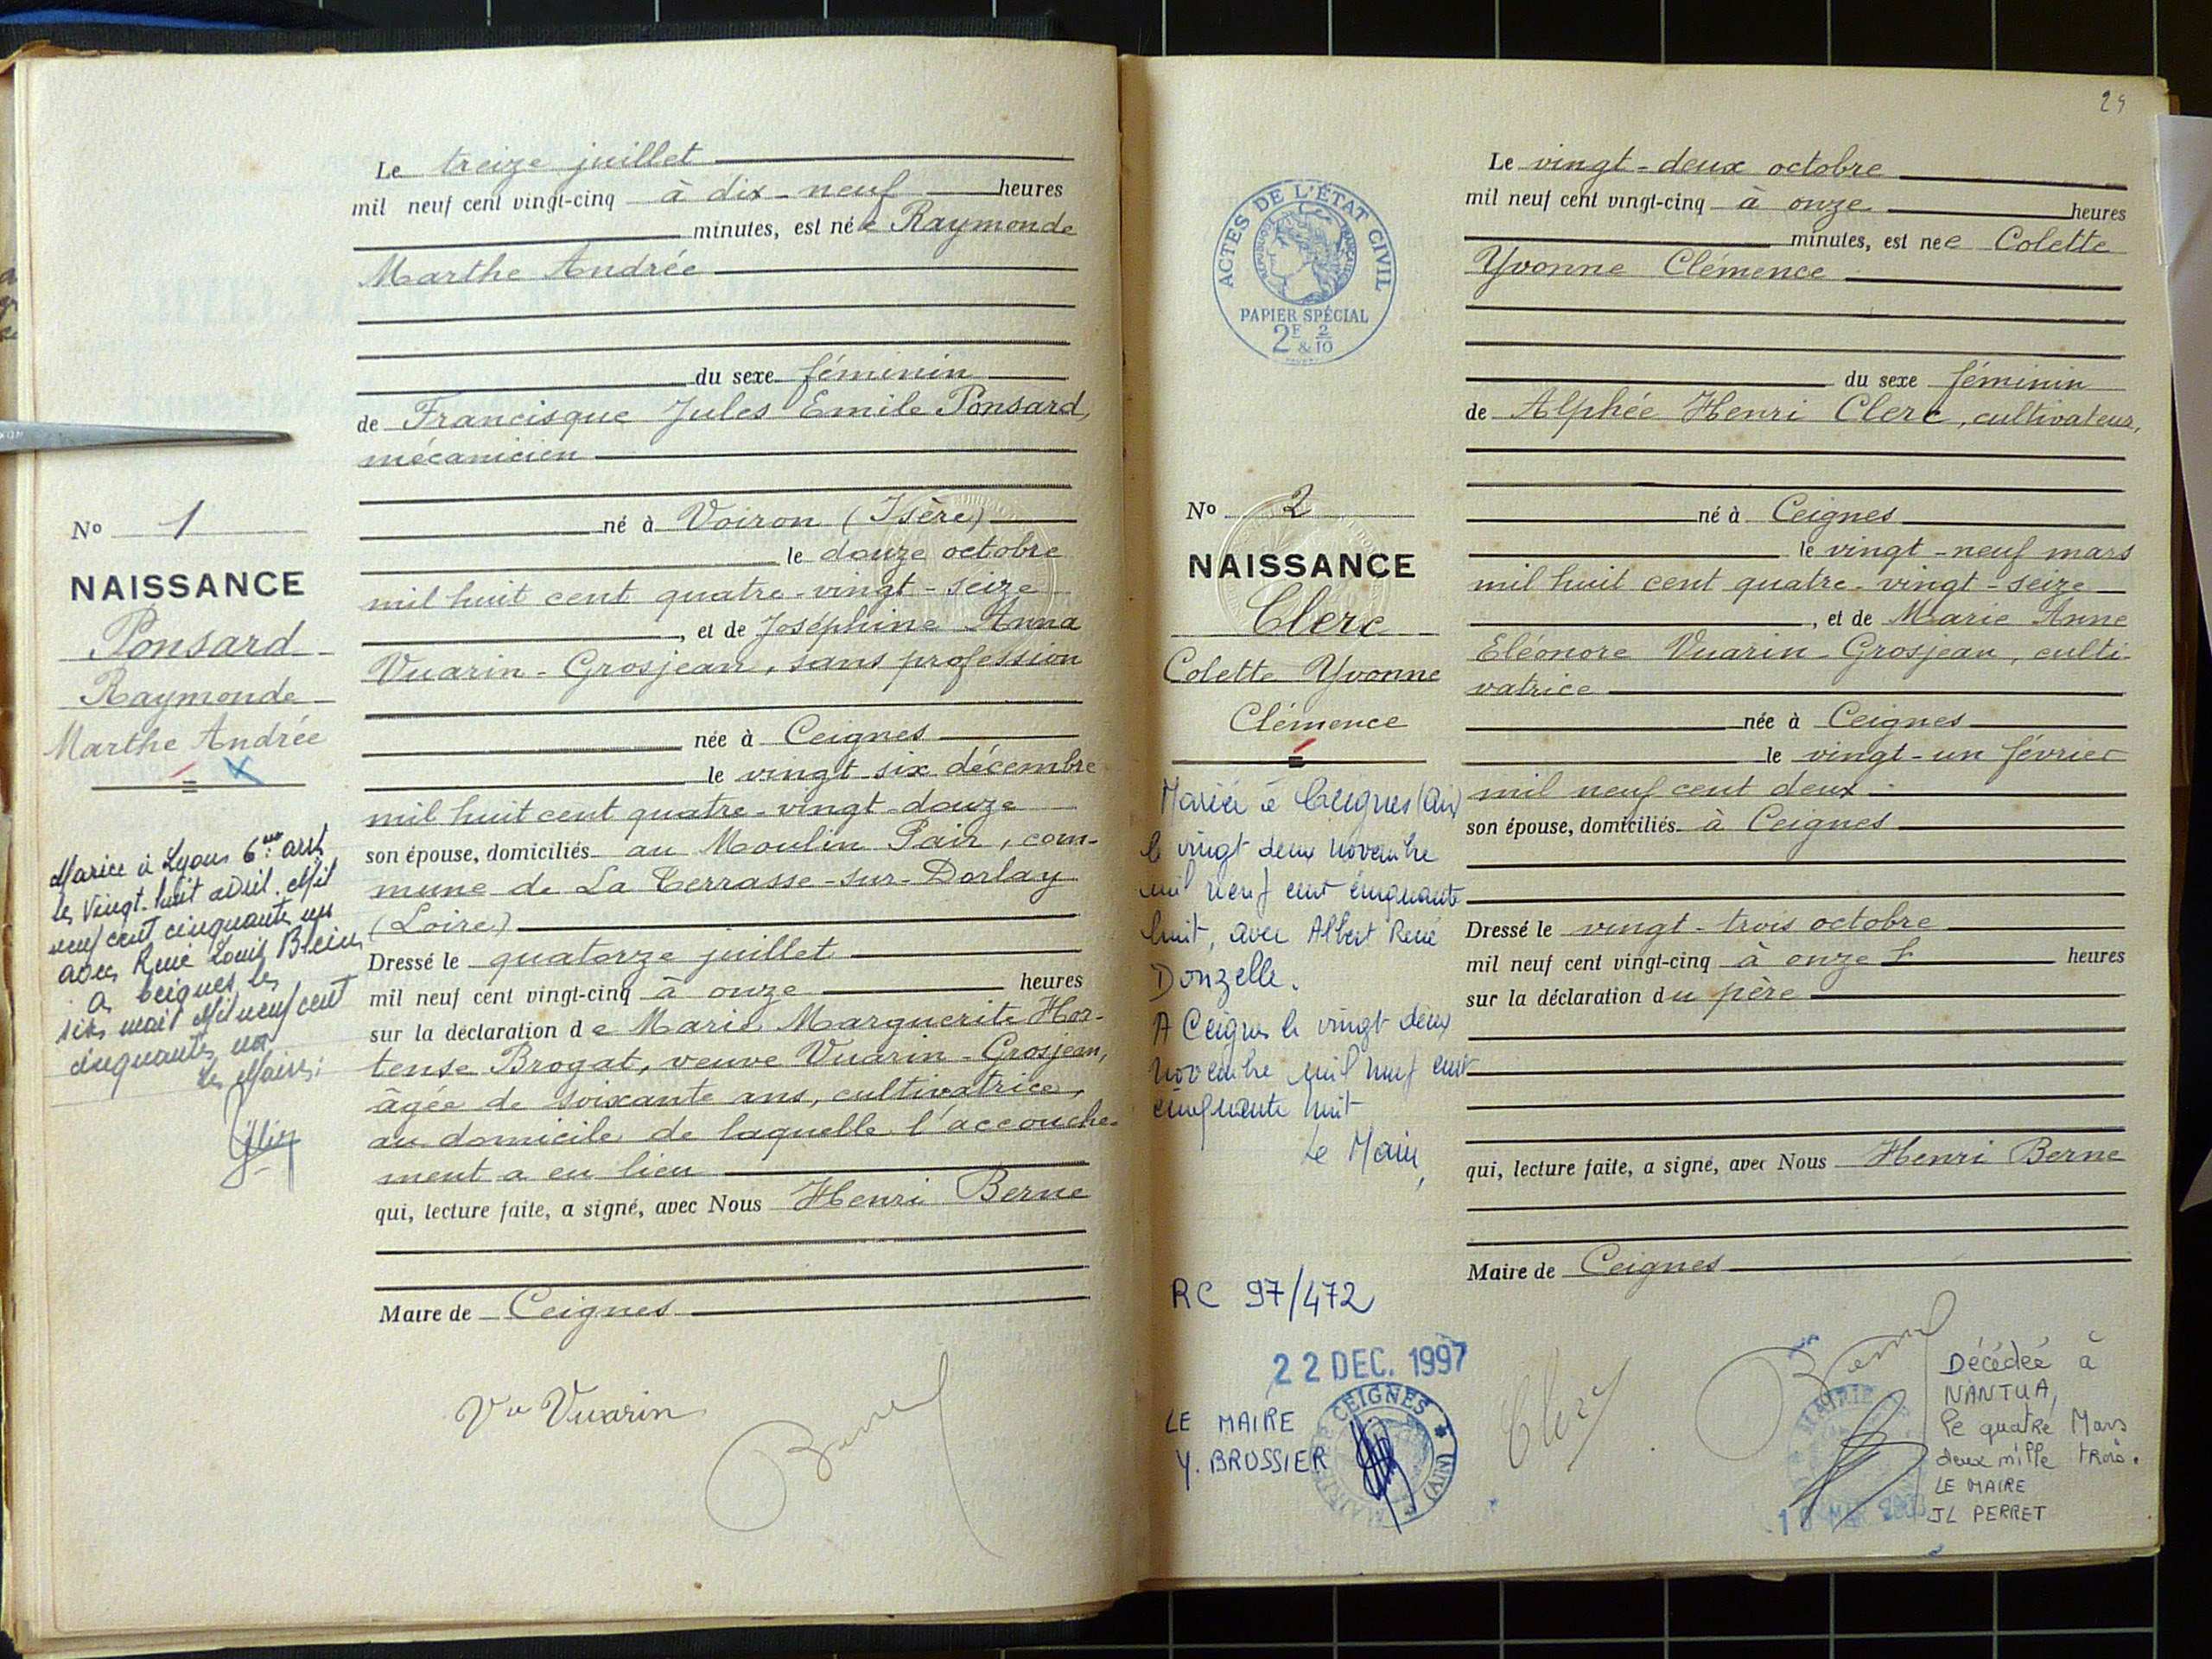 Le treize juillet
mil neuf cent vingt-cinq à dix-neuf heures
minutes, est née Raymonde
Marthe Andrée
du sexe féminin
de Francisque Jules Emile Ponsard,
mécanicien
né à Voiron (Isère)
le douze octobre
mil huit cent quatre-vingt-seize
, et de Joséphine Anna
Vuarin-Grosjean, sans profession
née à Ceignes
le vingt six décembre
mil huit cent quatre-vingt-douze
son épouse, domiciliés au Moulin Pair, com-
mune de La Terrasse-sur-Dorlay
(Loire)
Dressé le quatorze juillet
mil neuf cent vingt-cinq à onze heures
sur la déclaration de Marie Marguerite Hor-
tense Brogat, veuve Vuarin-Grosjean,
âgée de soixante ans, cultivatrice,
au domicile de laquelle l'accouche-
ment a eu lieu
qui, lecture faite, a signé, avec Nous Henri Berne
Maire de Ceignes
Vve Vuarin
Berne
No 1
NAISSANCE
Ponsard
Raymonde
Marthe Andrée
Mariée à Lyon 6me arrt
le vingt-huit avril Mil
neuf cent cinquante un
avec René Louis Blein
A Ceignes le
six mai Mil neuf cent
cinquante un
Le Maire:
24
Le vingt-deux octobre
mil neuf cent vingt-cinq à onze heures
minutes, est née Colette
Yvonne Clémence
du sexe féminin
de Alphée Henri Clerc, cultivateur,
né à Ceignes
le vingt-neuf mars
mil huit cent quatre-vingt-seize
, et de Marie Anne
Eléonore Vuarin-Grosjean, culti-
vatrice
née à Ceignes
le vingt-un février
mil neuf cent deux
son épouse, domiciliés à Ceignes
Dressé le vingt-trois octobre
mil neuf cent vingt-cinq à onze h heures
sur la déclaration du père
qui, lecture faite, a signé, avec Nous Henri Berne
Maire de Ceignes
Clerc
Berne
ACTES DE L'ÉTAT CIVIL
RÉPUBLIQUE FRANÇAISE
PAPIER SPÉCIAL
2F & 2/10
No 2
NAISSANCE
Clerc
Colette Yvonne
Clémence
Mariée à Ceignes (Ain)
le vingt deux novembre
mil neuf cent cinquante
huit, avec Albert René
Donzelle.
A Ceignes le vingt deux
novembre mil neuf cent
cinquante huit
Le Maire,
RC 97/472
22 DEC. 1997
LE MAIRE
Y. BROSSIER
MAIRIE DE CEIGNES * (AIN) *
MAIRIE
Décédée à
NANTUA,
le quatre Mars
deux mille trois.
LE MAIRE
JL PERRET